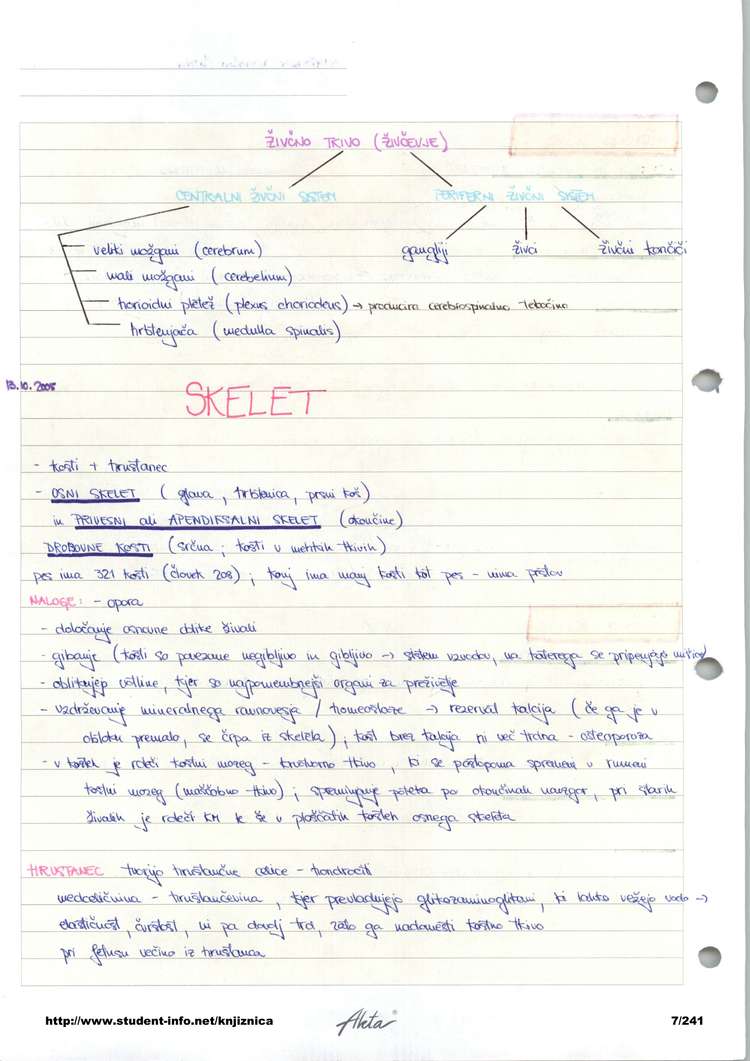 ŽIVČNO TKIVO (ŽIVČEVJE)
CENTRALNI ŽIVČNI SISTEM PERIFERNI ŽIVČNI SISTEM
veliki možgani (cerebrum) gangliji živci živčni končiči
mali možgani (cerebellum)
horioidni pletež (plexus chorioideus) → producira cerebrospinalno tekočino
hrbtenjača (medulla spinalis)
13.10.2008
SKELET
- kosti + hrustanec
- OSNI SKELET (glava, hrbtenica, prsni koš)
in PRIVESNI ali APENDIKSALNI SKELET (okončine)
DROBOVNE KOSTI (srčna; kosti v mehkih tkivih)
pes ima 321 kosti (človek 208); konj ima manj kosti kot pes - nima prstov
NALOGE: - opora
- določanje osnovne oblike živali
- gibanje (kosti so povezane negibljivo in gibljivo → sistem vzvodov, na katerega se pripenjajo mišice)
- oblikujejo votline, kjer so najpomembnejši organi za preživetje
- vzdrževanje mineralnega ravnovesja / homeostaze → rezerva kalcija (če ga je v
obtoku premalo, se črpa iz skeleta); kost brez kalcija ni več trdna - osteoporoza
- v kosteh je rdeči kostni mozeg - krvotvorno tkivo, ki se postopoma spremeni v rumeni
kostni mozeg (maščobno tkivo); spreminjanje poteka po okončinah navzgor, pri starih
živalih je rdeči KM le še v ploščatih kosteh osnega skeleta
HRUSTANEC tvorijo hrustančne celice - hondrociti
medceličnina - hrustančevina, kjer prevladujejo glikozaminoglikani, ki lahko vežejo vodo →
elastičnost, čvrstost, ni pa dovolj trd, zato ga nadomesti kostno tkivo
pri fetusu večino iz hrustanca
http://www.student-info.net/knjiznica Akta 7/241